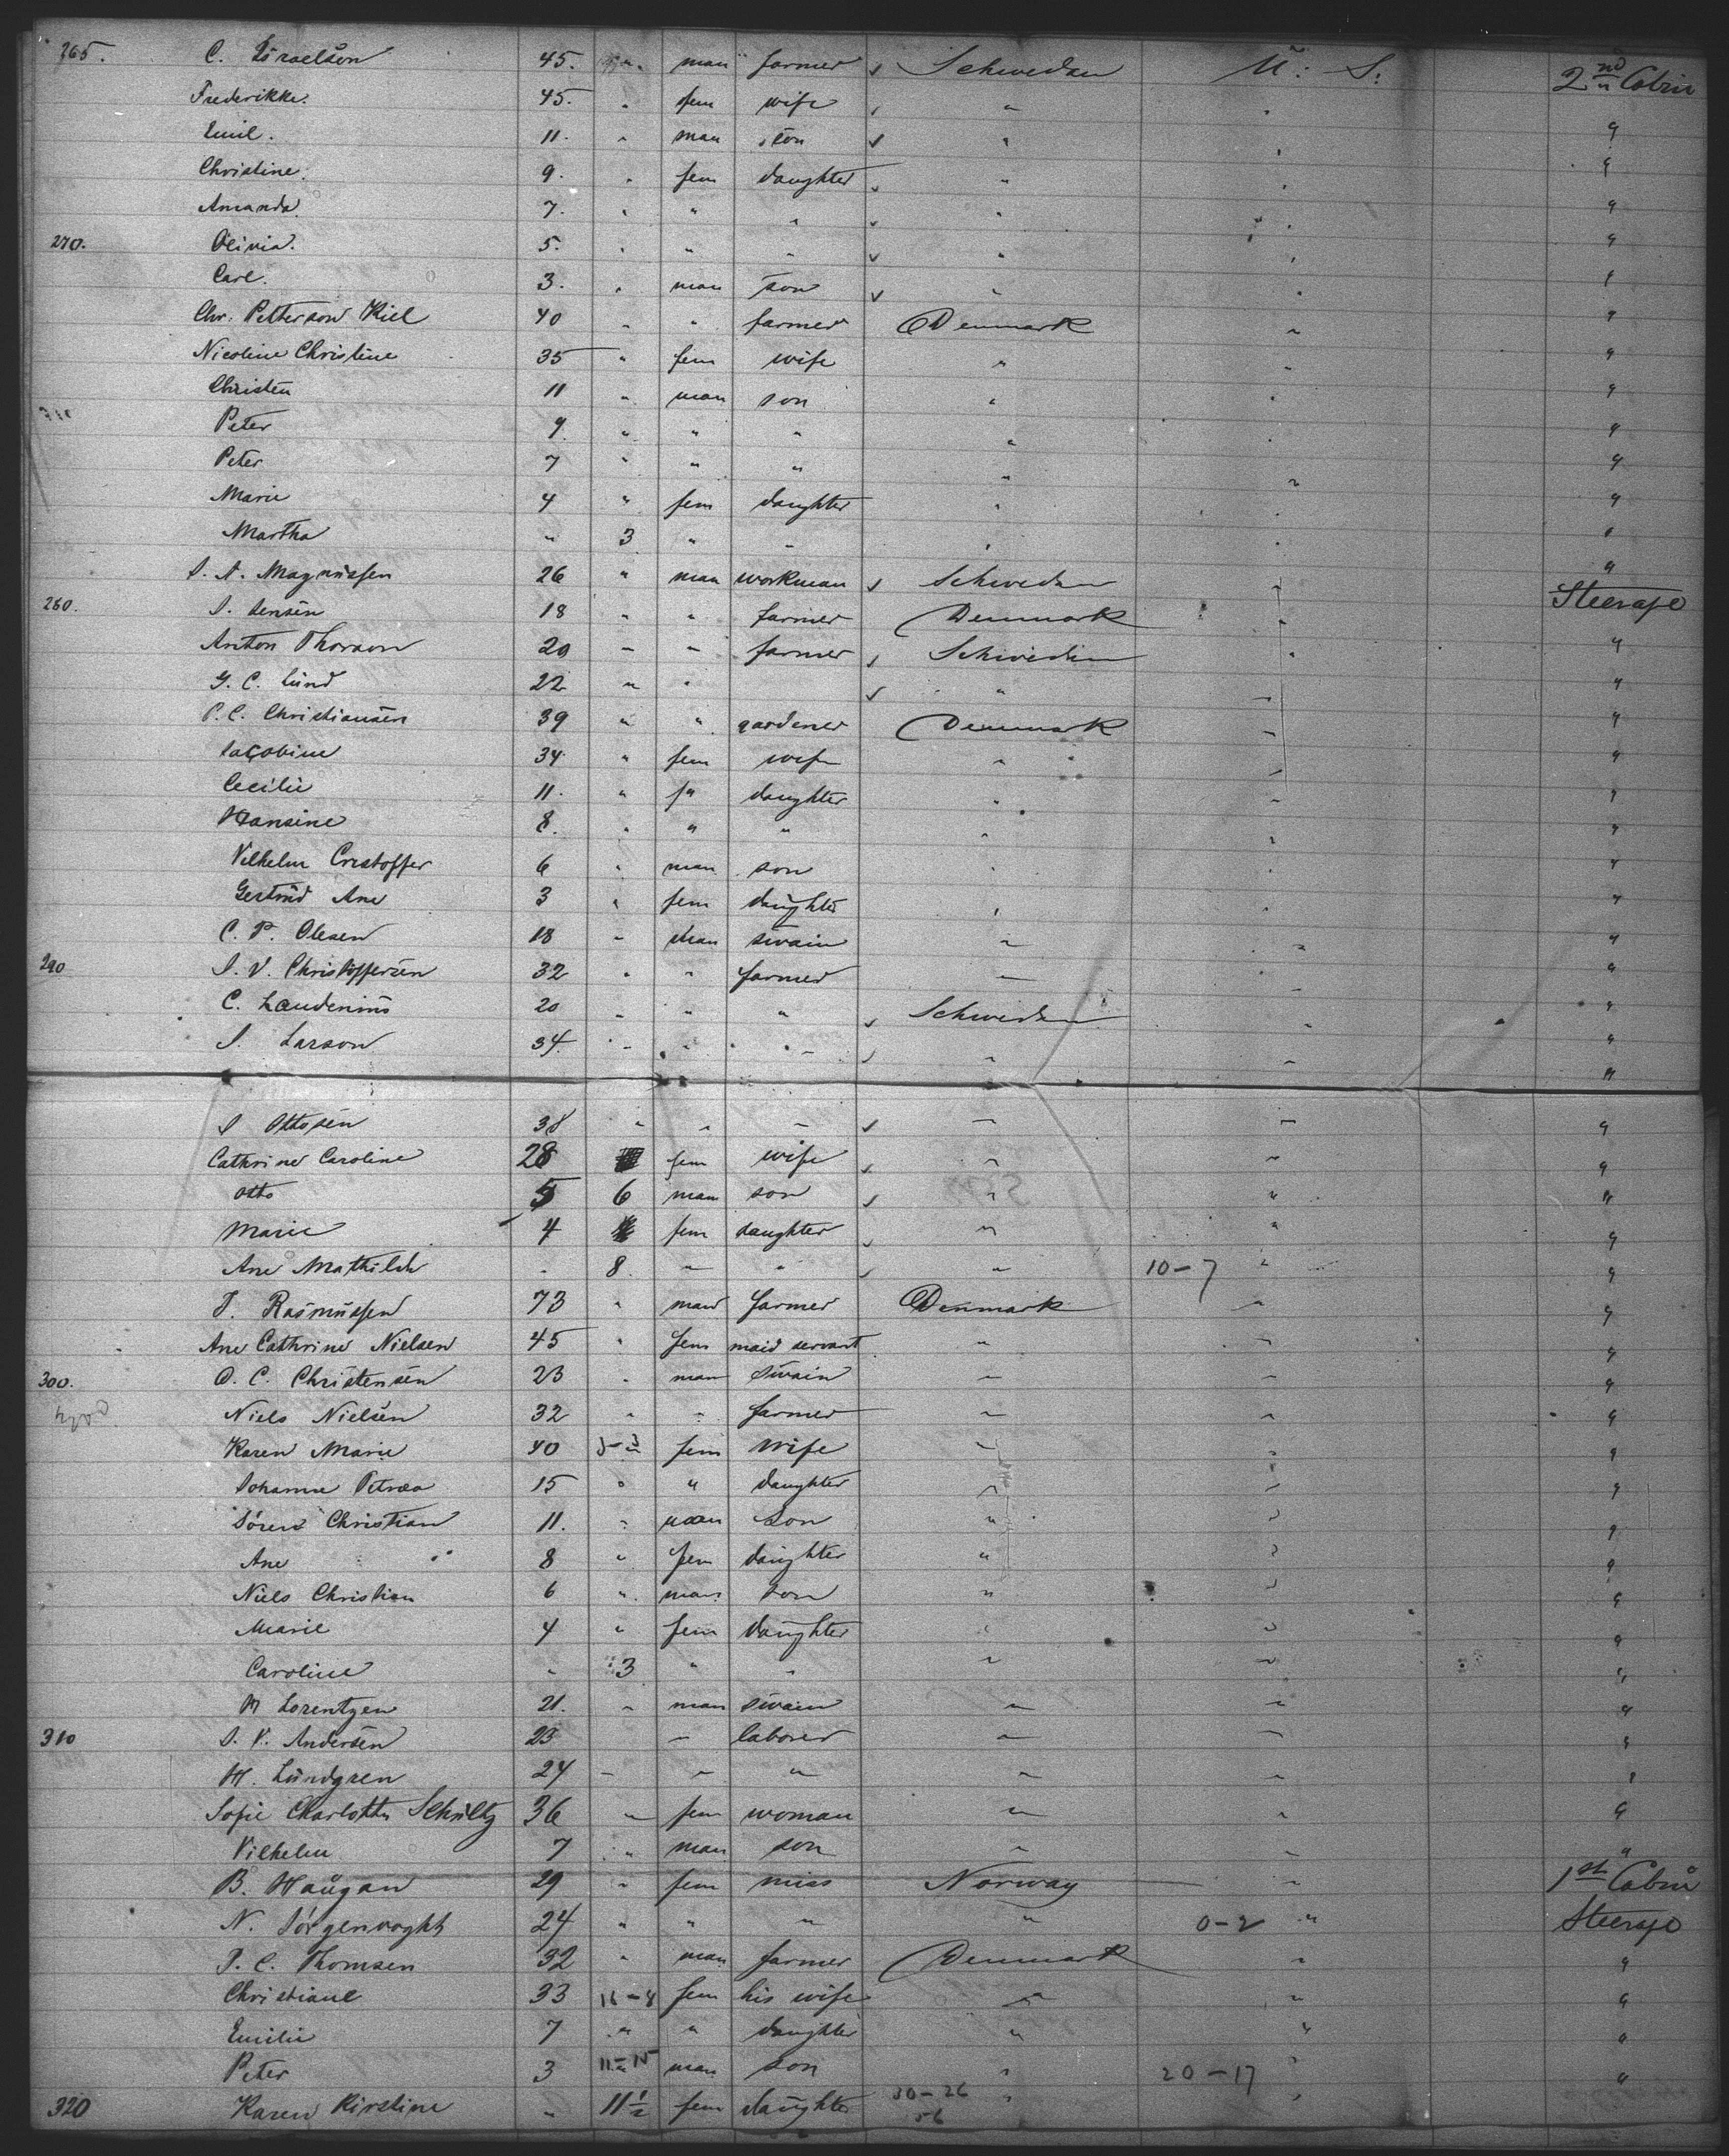 265. C. Israelsen 45. man farmer ✓ Schweden U: S: 2nd Cabin
Frederikke. 45. " fem wife ✓ " " "
Emil. 11. " man son ✓ " " "
Christine. 9. " fem daughter ✓ " " "
Amanda. 7. " " " ✓ " " "
270. Olivia. 5. " " " ✓ " " "
Carl. 3. " man son ✓ " " "
Chr. Petterson Kiel 40 " " farmer Denmark " "
Nicoline Christine 35 " fem wife " " "
Christen 11 " man son " " "
Peter 9. " " " " " "
Peter 7 " " " " " "
Marie 4 " fem daughter " " "
Martha " 3 " " " " "
S. A. Magnussen 26 " man workman ✓ Schweden " Steerage
280. S. Jensen 18 " " farmer Denmark " "
Anton Thorson 20 " " farmer ✓ Schweden " "
G. C. Lund 22 " " ✓ " " "
P. C. Christiansen 39 " " gardener Denmark " "
Jacobine 34 " fem wife " " "
Cecilie 11. " f" daughter " " "
Hansine 8. " " " " " "
Vilhelm Crestoffer 6 " man son " " "
Gertrud Ane 3 " fem daughter " " "
C. P. Olesen 18 " man swain " " "
290 J. V. Christoffersen 32 " " farmer " " "
C. Laudenius 20 " " " ✓ Schweden " "
J. Larson 34 " " " ✓ " " "
J Ottosen 38 " " " ✓ " " "
Cathrine Caroline 28 fem wife ✓ " " "
Otto 5 6 man son ✓ " " "
Marie 4 fem daughter ✓ " " "
Ane Mathilde " 8. " " ✓ " 10-7 " "
J. Rasmussen 73 " man farmer Denmark " "
Ane Cathrine Nielsen 45 " fem maid servant " " "
300. O. C. Christensen 23 " man swain " " "
Niels Nielsen 32 " " farmer " " "
Karen Marie 40 fem wife " " "
Johanne Petrea 15 " " daughter " " "
Sören Christian 11. " man son " " "
Ane 8 " fem daughter " " "
Niels Christian 6 " man son " " "
Marie 4 " fem daughter " " "
Caroline " 3 " " " " "
N Lorentzen 21. " man swain " " "
310 J. V. Andersen 23 " laborer " " "
H. Lundgren 24 " " " " " "
Sofie Charlotte Schultz 36 " fem woman " " "
Vilhelm 7 " man son " " "
B. Haugan 29 " fem miss Norway " 1st Cabin
N. Sörgenvoght 24 " " " " 0-2 " Steerage
J. C. Thomsen 32 " man farmer Denmark " "
Christiane 33 16-4 fem his wife " " "
Emilie 7 " " daughter " " "
Peter 3 11-15 man son " 20-17 " "
320 Karen Kirstine " 11 1/2 fem daughter 30-26 " "
56